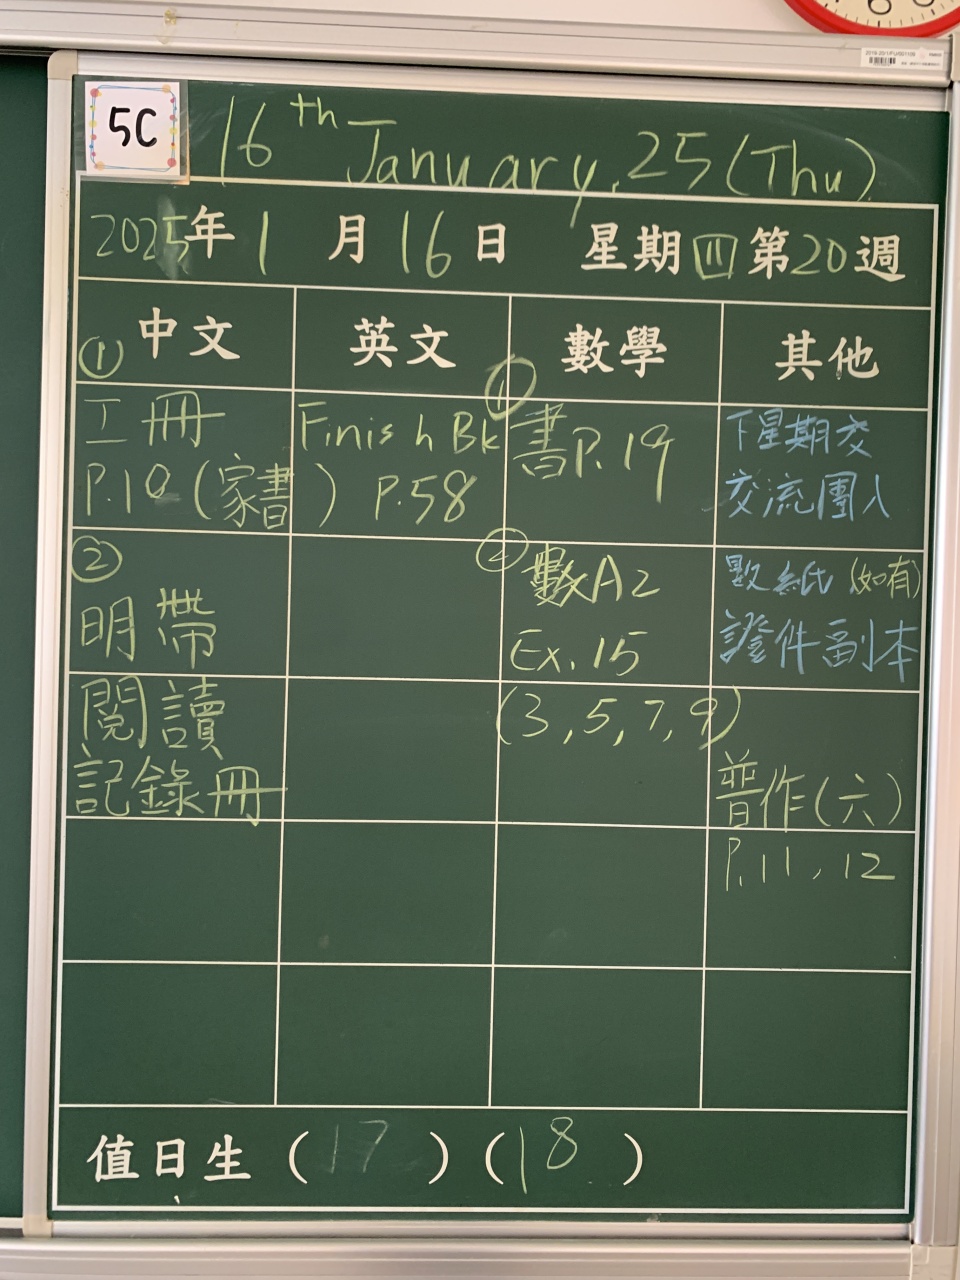 5C
16th January, 25 (Thu)
2025年1月16日 星期四第20週
中文
①
工冊
P.10 (家書)
②
明帶
閱讀
記錄冊
英文
Finish Bk
P.58
數學
①
書P.19
②
數A2
Ex. 15
(3, 5, 7, 9)
其他
下星期交
交流團入
數紙 (如有)
證件副本
普作(六)
P.11, 12
值日生 (17) (18)